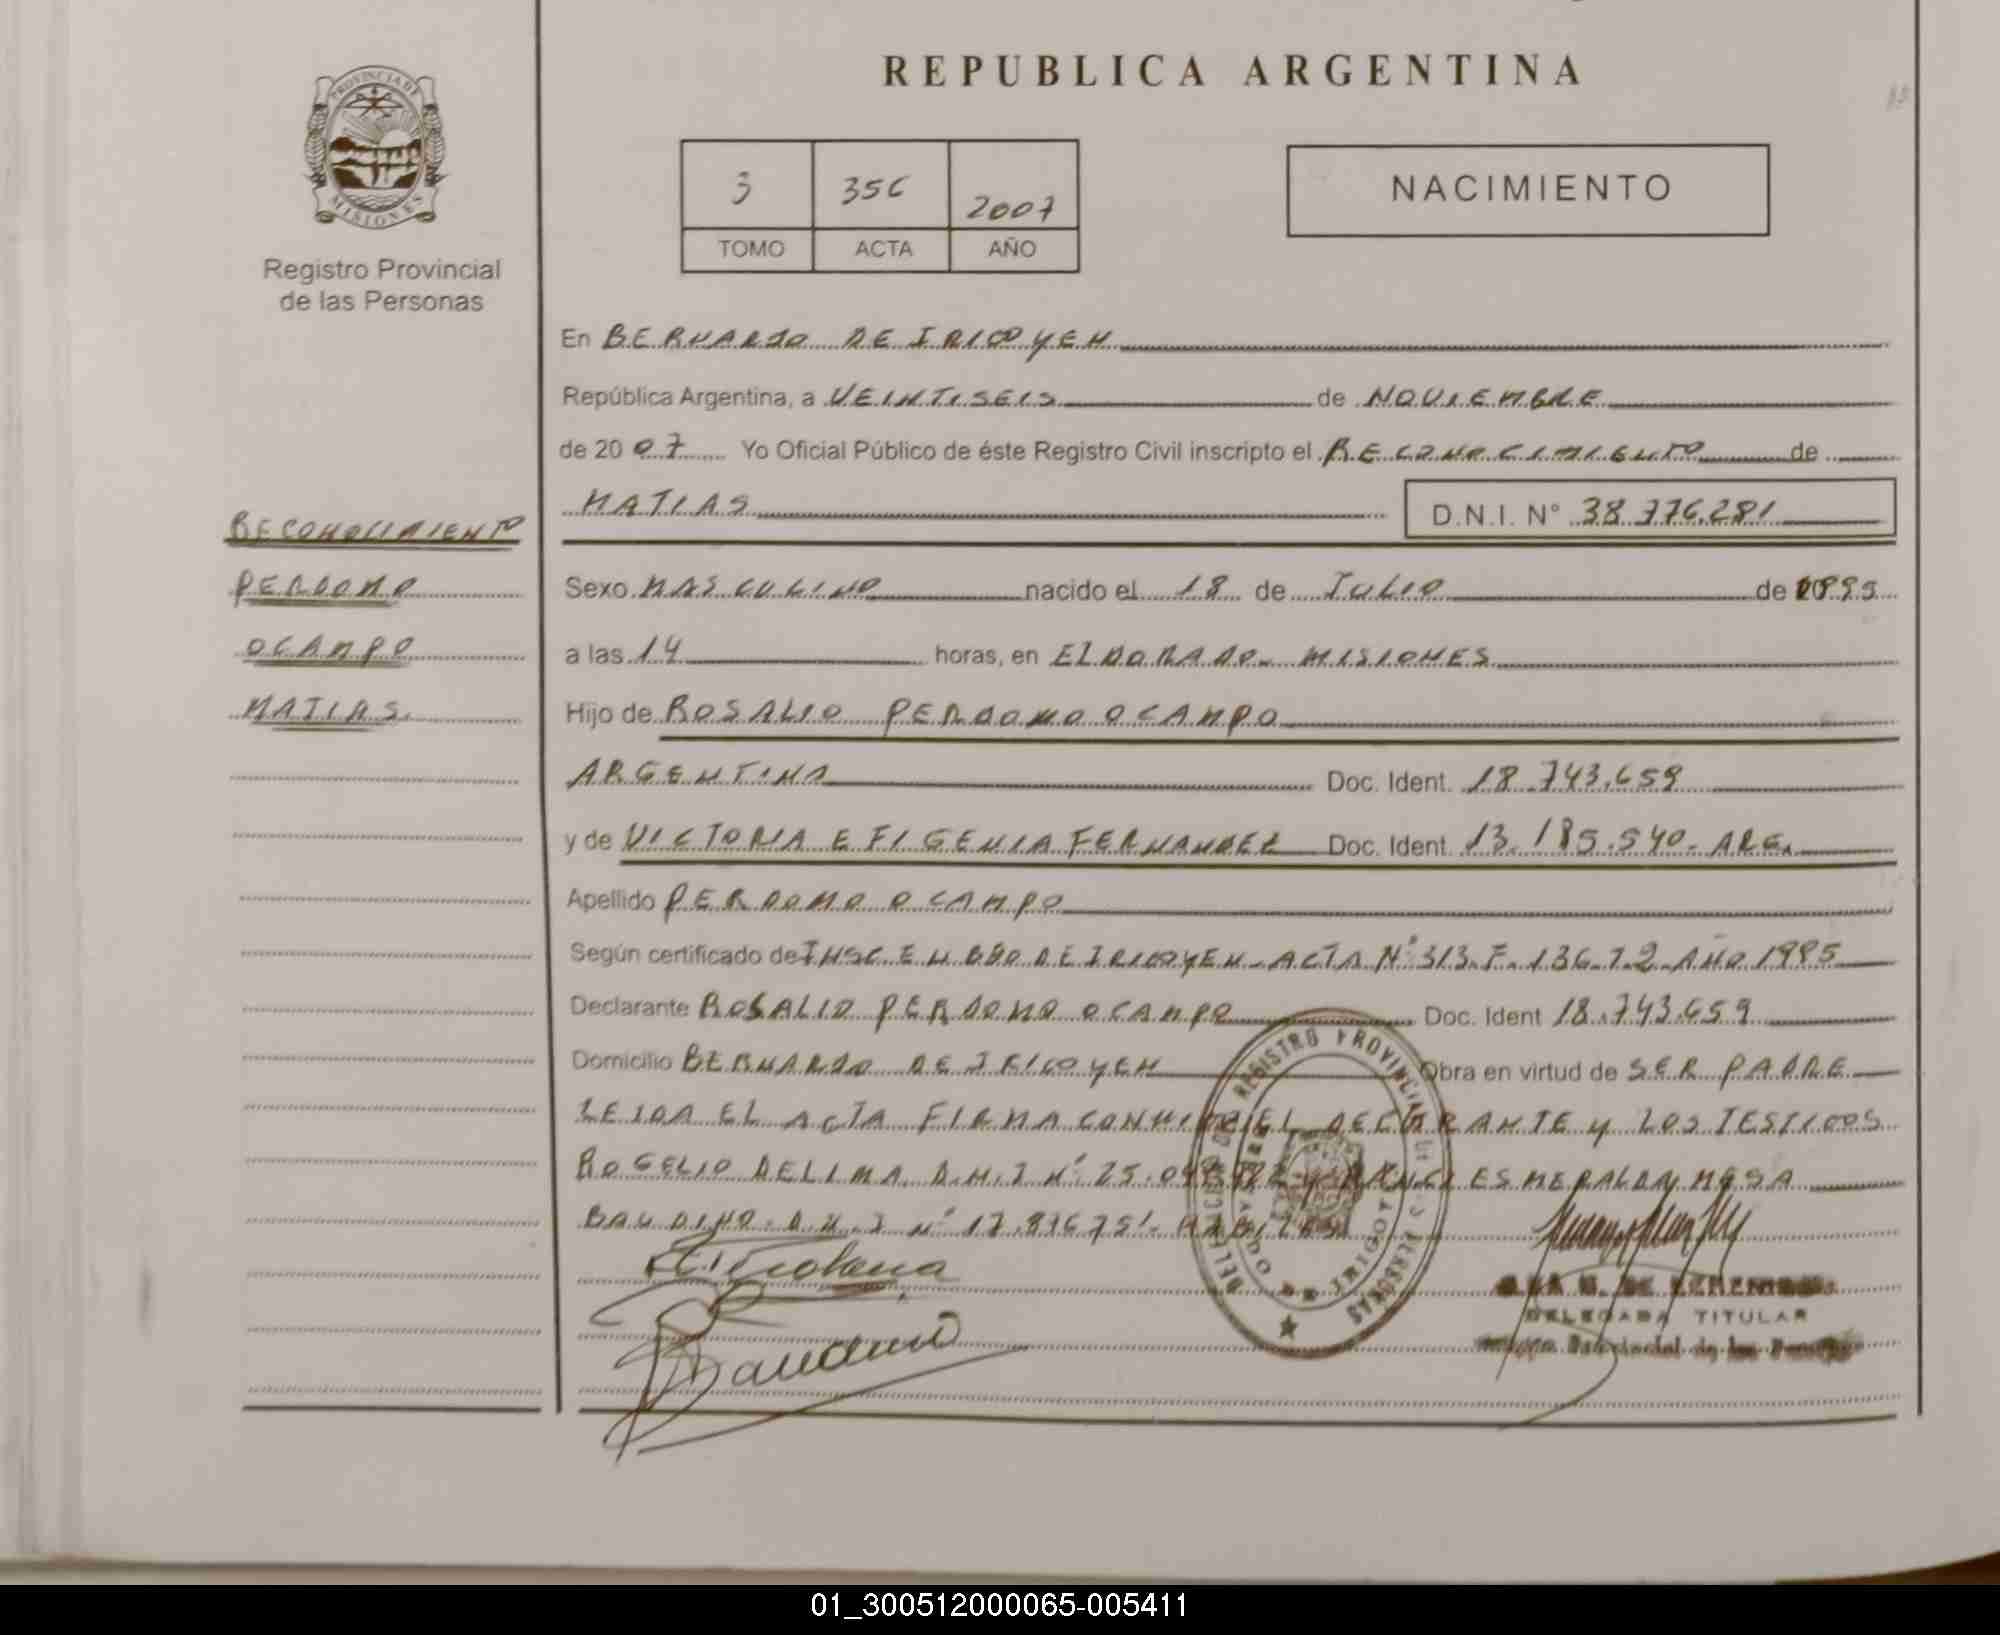 REPUBLICA ARGENTINA
PROVINCIA DE
MISIONES
Registro Provincial
de las Personas
3 356 2007
TOMO ACTA AÑO
NACIMIENTO
En BERNARDO DE IRIGOYEN
República Argentina, a VEINTISEIS de NOVIEMBRE
de 2007 Yo Oficial Público de éste Registro Civil inscripto el RECONOCIMIENTO de
MATIAS D.N.I. N° 38.776.281
RECONOCIMIENTO
PERDOMO
OCAMPO
MATIAS.
Sexo MASCULINO nacido el 18 de JULIO de 1995
a las 14 horas, en ELDORADO- MISIONES
Hijo de ROSALIO PERDOMO OCAMPO
ARGENTINA Doc. Ident. 18.743.659
y de VICTORIA EFIGENIA FERNANDEZ Doc. Ident. 13.185.540- ARG.
Apellido PERDOMO OCAMPO
Según certificado de INSC EN BDO DE IRIGOYEN- ACTA N° 313-F-136-T-2-AÑO 1995
Declarante ROSALIO PERDOMO OCAMPO Doc. Ident 18.743.659
Domicilio BERNARDO DE IRIGOYEN Obra en virtud de SER PADRE
LEIDA EL ACTA FIRMA CONMIGO EL DECLARANTE Y LOS TESTIGOS
ROGELIO DELIMA D.N.I N° 25. ESMERALDA MESA
BAUDINO- D.N.I N°
Baudino
REGISTRO PROVINCIAL DE LAS PERSONAS
DELEGADA TITULAR
Provincial de las Personas
01_300512000065-005411